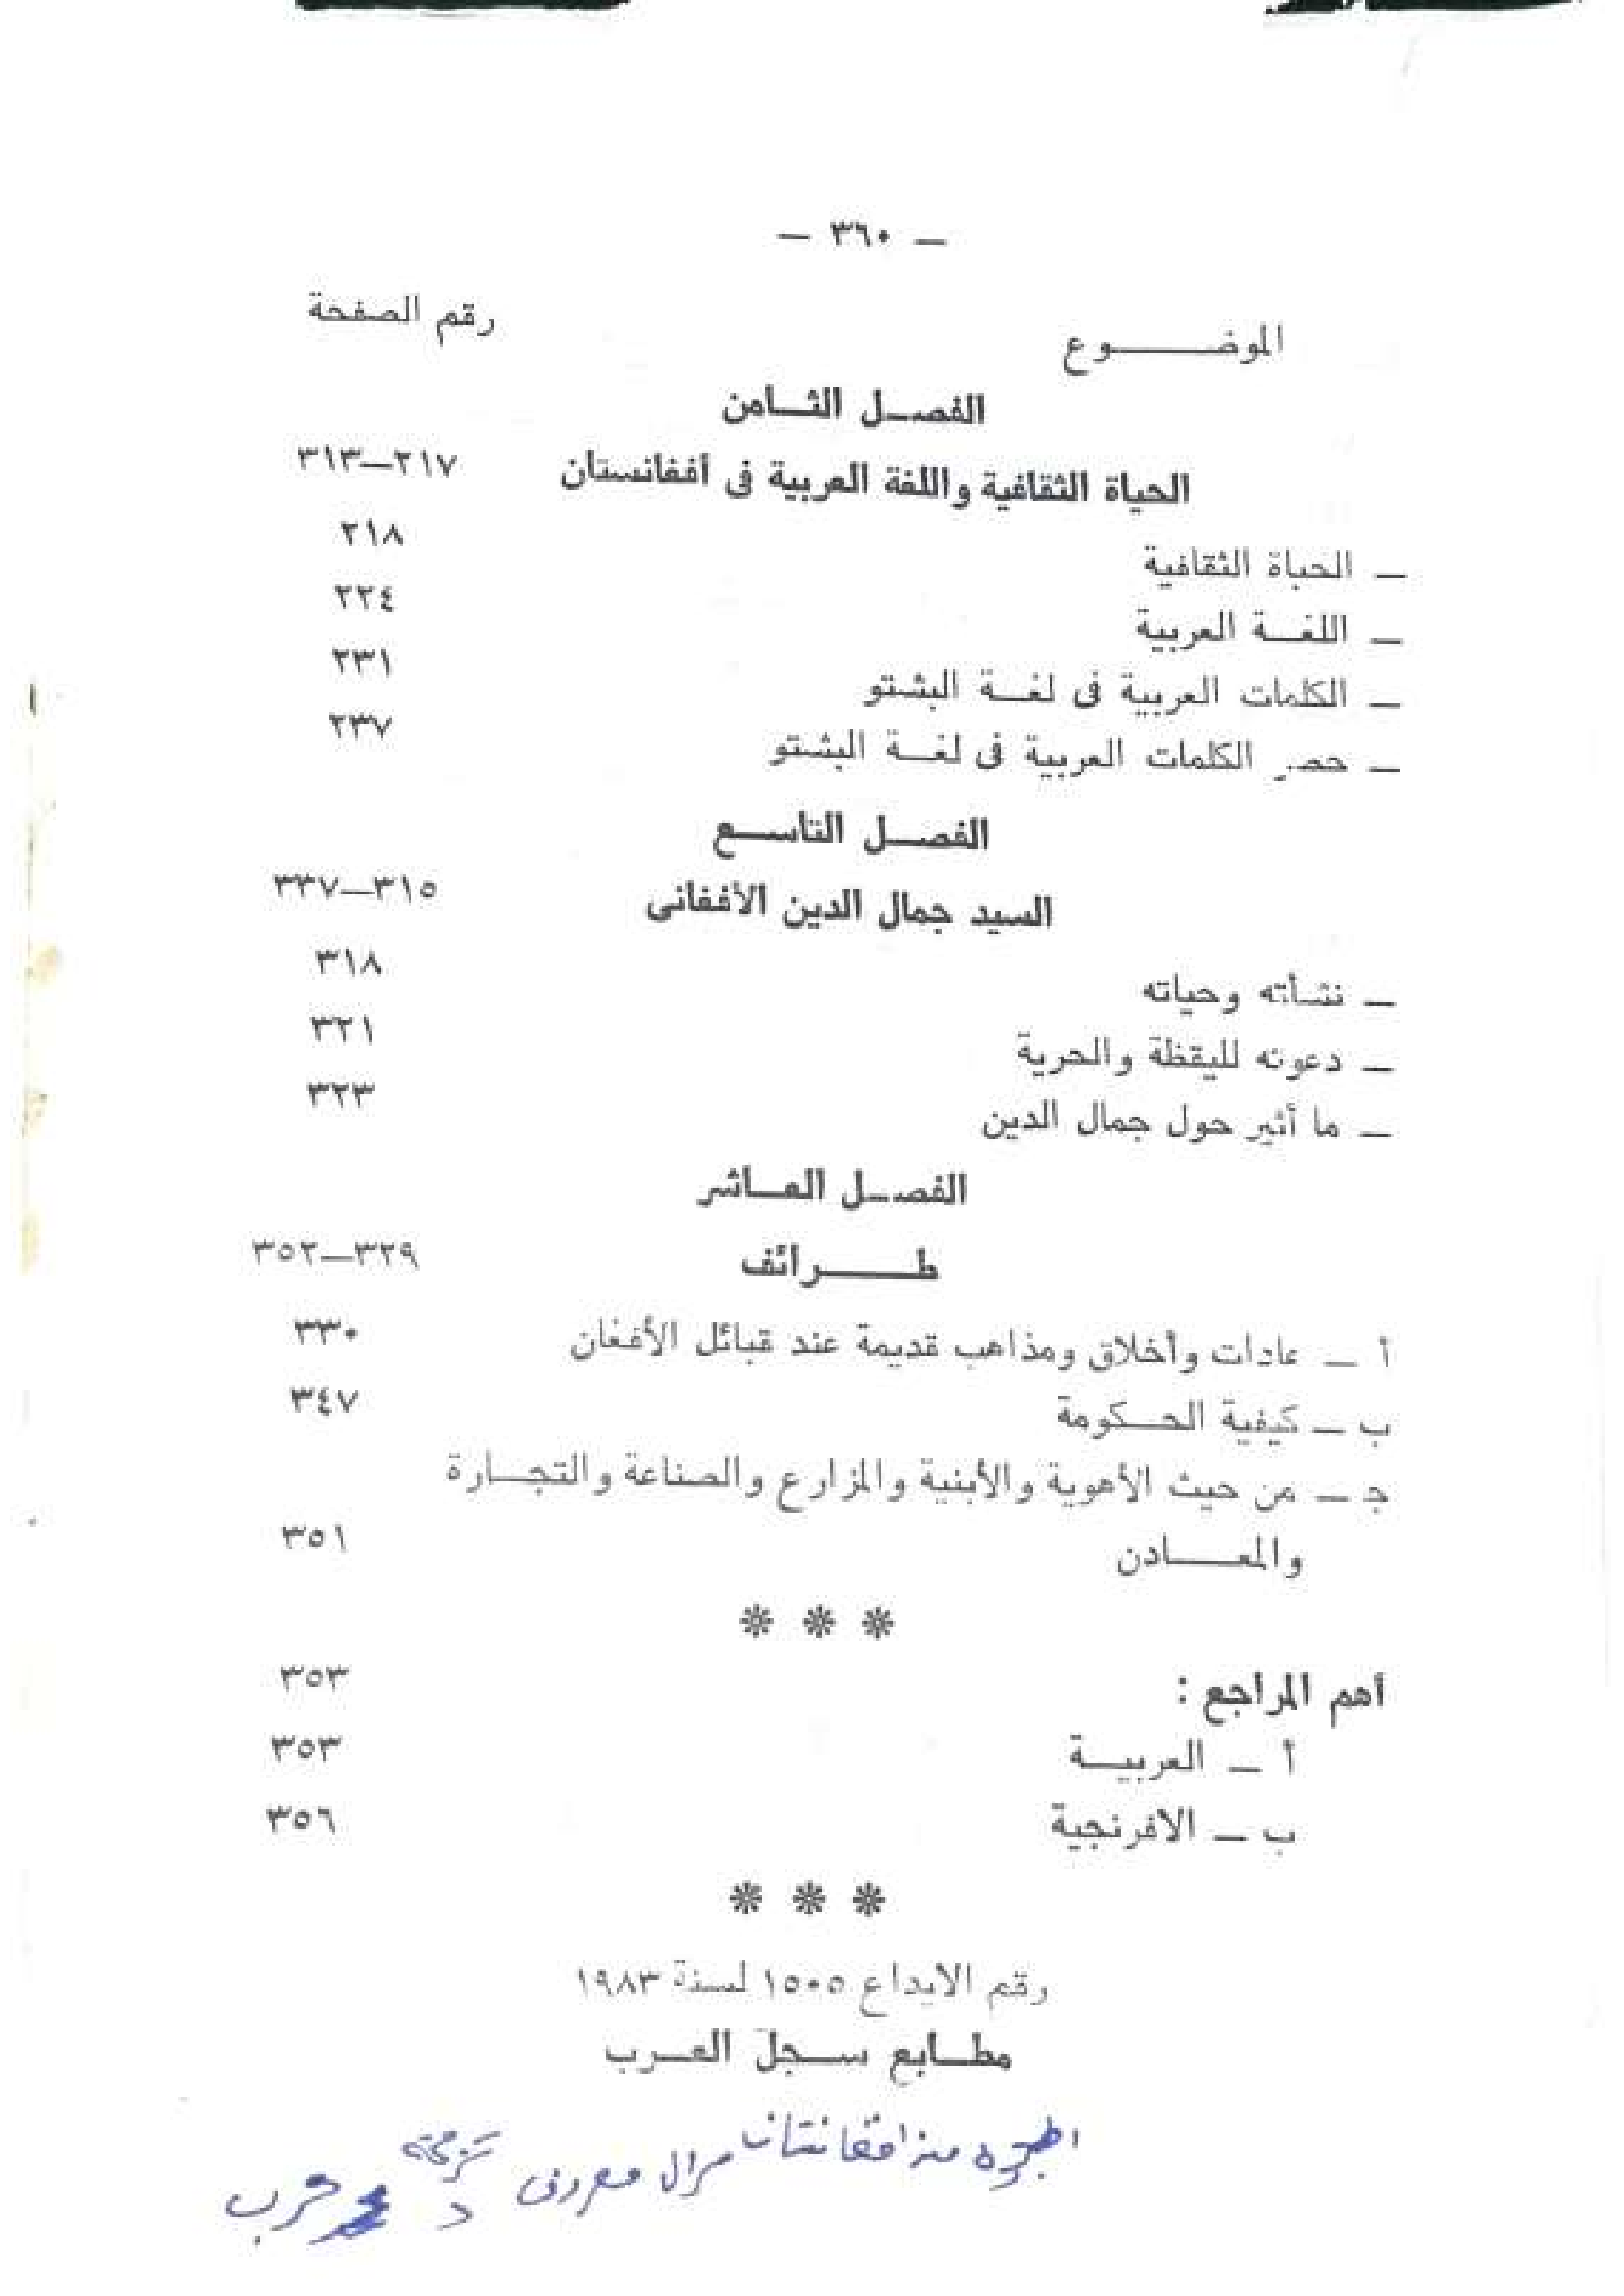 — ٣٦٠ —
الموضـــــــوع رقم الصفحة
الفصـل الثـامن
الحياة الثقافية واللغة العربية فى أفغانستان ٢١٧—٣١٣
— الحياة الثقافية ٢١٨
— اللغـة العربية ٢٢٤
— الكلمات العربية فى لغـة البشتو ٢٣١
— حصر الكلمات العربية فى لغـة البشتو ٢٣٧
الفصـل التاسـع
السيد جمال الدين الأفغانى ٣١٥—٣٣٧
— نشأته وحياته ٣١٨
— دعوته لليقظة والحرية ٣٢١
— ما أثير حول جمال الدين ٣٢٣
الفصـل العـاشر
طــــرائف ٣٢٩—٣٥٢
أ — عادات وأخلاق ومذاهب قديمة عند قبائل الأفغان ٣٣٠
ب — كيفية الحـكومة ٣٤٧
جـ — من حيث الأهوية والأبنية والمزارع والصناعة والتجـارة
والمعـــادن ٣٥١
* * *
أهم المراجع : ٣٥٣
أ — العربيـة ٣٥٣
ب — الافرنجية ٣٥٦
* * *
رقم الايداع ١٥٠٥ لسنة ١٩٨٣
مطـابع سـجل العـرب
من افغانستان